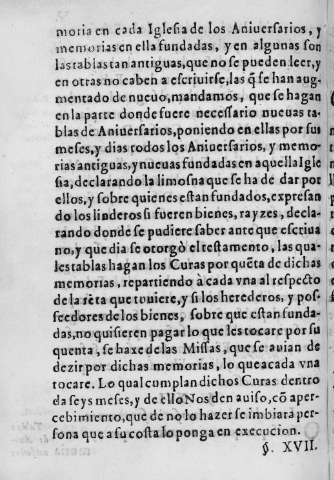 moria en cada Iglesia de los Aniuersarios, y
memorias en ella fundadas, y en algunas son
las tablas tan antiguas, que no se pueden leer, y
en otras no caben a escriuirse, las q̃ se han au-
mentado de nueuo, mandamos, que se hagan
en la parte donde fuere necessario nueuas ta-
blas de Aniuersarios, poniendo en ellas por sus
meses, y dias todos los Aniuersarios, y memo-
rias antiguas, y nueuas fundadas en aquella Igle
sia, declarando la limosna que se ha de dar por
ellos, y sobre quienes estan fundados, expresan
do los linderos si fueren bienes, rayzes, decla-
rando donde se pudiere saber ante que escriua
no, y que dia se otorgò el testamento, las qua-
les tablas hagan los Curas por quẽta de dichas
memorias, repartiendo à cada vna al respecto
de la rẽta que tuuiere, y si los herederos, y pos-
seedores de los bienes, sobre que estan funda-
das, no quisieren pagar lo que les tocare por su
quenta, se baxe de las Missas, que se auian de
dezir por dichas memorias, lo que a cada vna
tocare. Lo qual cumplan dichos Curas dentro
da seys meses, y de ello Nos den auiso, cõ aper-
cebimiento, que de no lo hazer se imbiara per-
sona que a su costa lo ponga en execucion.
§. XVII.